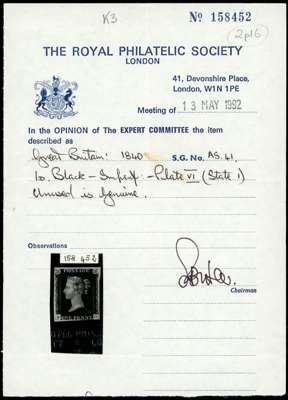 K3
Nº 158452
(2p16)
THE ROYAL PHILATELIC SOCIETY
LONDON
41, Devonshire Place,
London, W1N 1PE
Meeting of 13 MAY 1992
In the OPINION of The EXPERT COMMITTEE the item
described as
Great Britain: 1840 S.G. No. AS.41,
1d. Black – Imperf: – Plate VI (State 1)
Unused is Genuine.
Observations
158 452
POSTAGE
ONE PENNY
Chairman